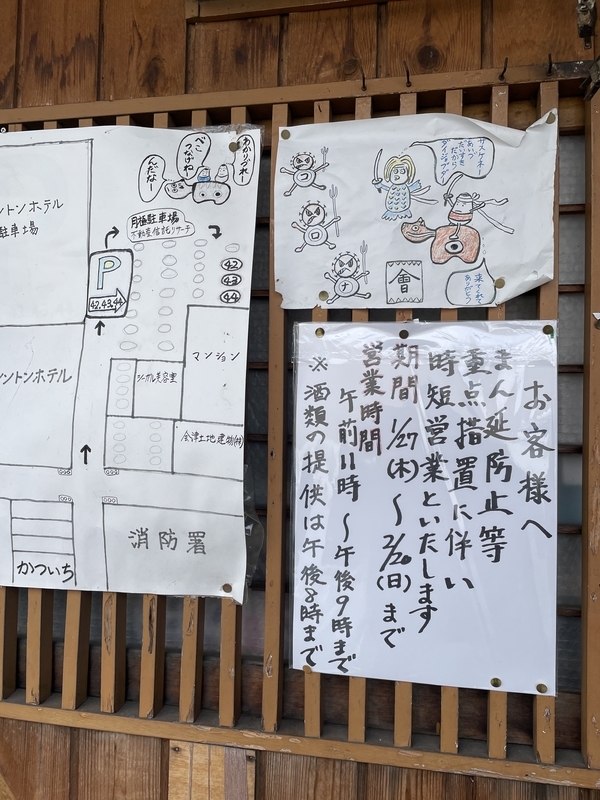 ントンホテル
駐車場
あかりづれー
べこつなげね
んだなー
月極駐車場
不動産信託リサーチ
P
42.43.44
42
43
44
ントンホテル
マンション
シーガル美容室
会津土地建物(株)
かついち
消防署
サスケネー
あいづ
だいすき
だから
ダイジョブダ
コ
ロ
ナ
會
来てくれて
ありがとう
お客様へ
まん延防止等
重点措置に伴い
時短営業といたします
期間 1/27(木)~2/20(日)まで
営業時間
午前11時~午後9時まで
※酒類の提供は午後8時まで